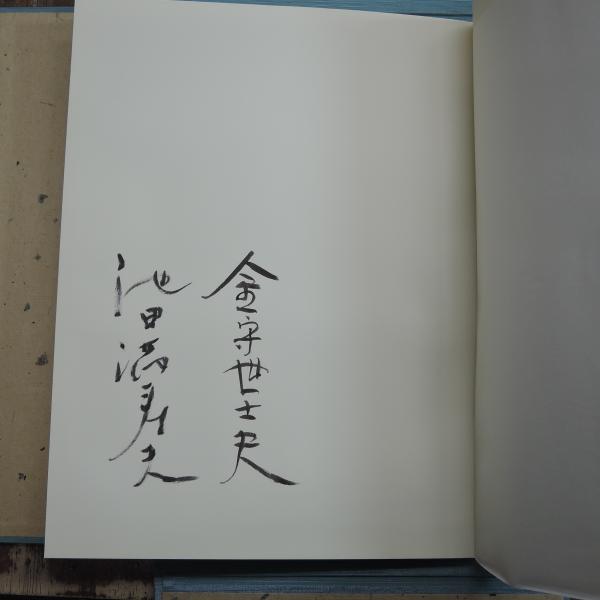 金守世士夫
池田満寿夫